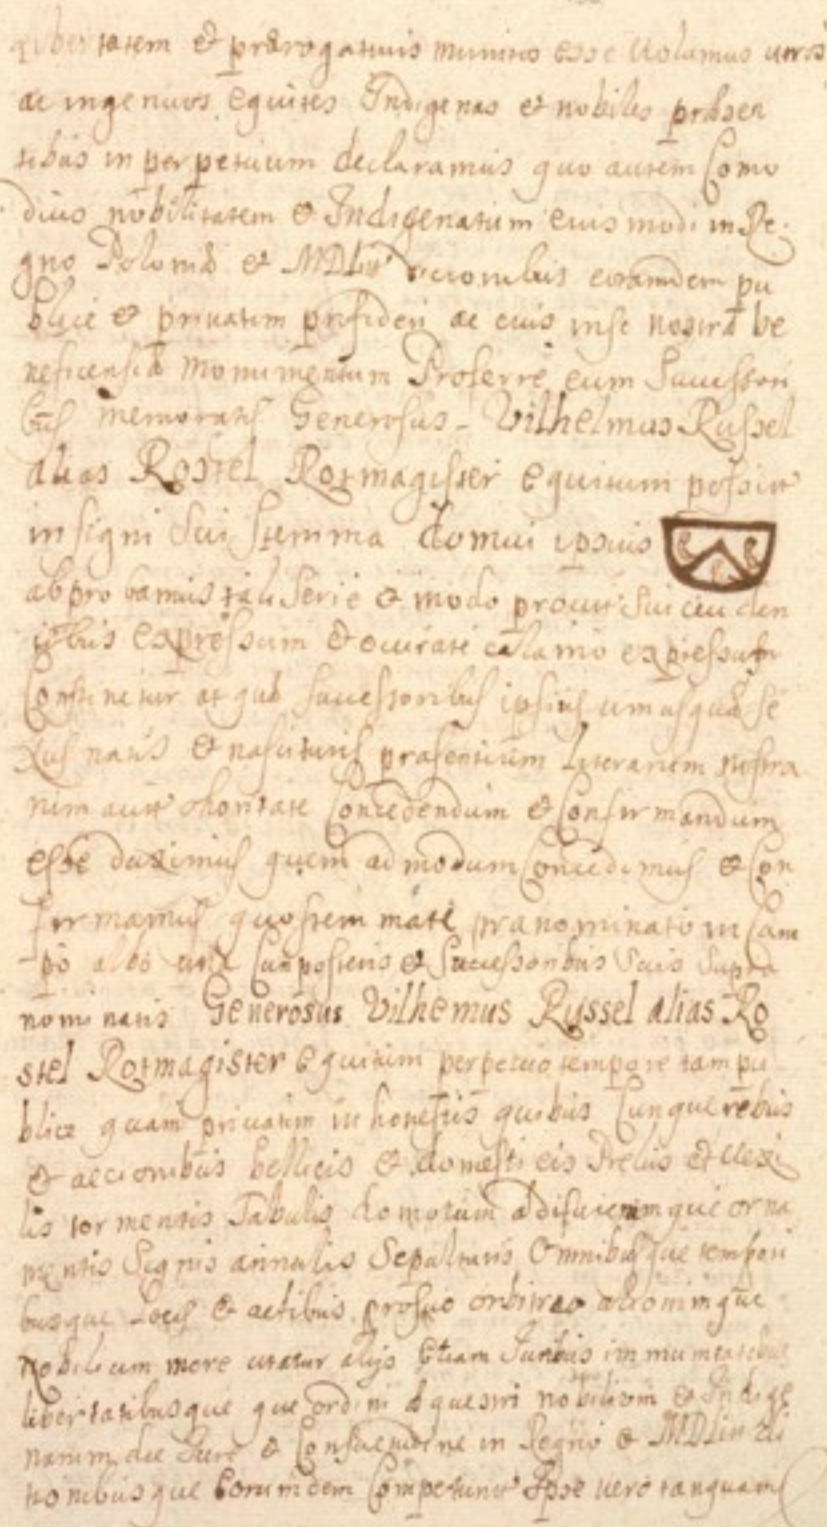 libertatem & prærogativis munitos esse volumus veros
ac ingenuos Equites Indigenas et nobiles præsen
tibus in perpetuum declaramus quo autem Como
dius nobilitatem & Indigenatum eius modi in Re
gno Poloniæ et MDLit ditionibus eorumdem pu
blice & privatim profiderj ac eius inse nostræ be
neficensiæ Monumentum Proferre cum Successori
bus memoratis Generosus Vilhelmus Russel
alias Rostel Rotmagister equitum possint
insigni Sui Stemma domui ipsius
abprobamus tali Serie & modo prout
expressum & accurate calamo expressum
Continetur at que successoribus ipsius utriusque se
xus natis & nascituris præsentium Literarum nostra
rum authoritate Concedendum & Confirmandum
esse duximus quem ad modum Concedimus & Con
firmamus quo stemmate prænominato in Cam
po albo una Cum posteris & Successoribus Suis Supra
nominatis Generosus Vilhemus Russel alias Ro
stel Rotmagister equitum perpetuo tempore tam pu
blice quam privatim in honestis quibus Cunque rebus
& accionibus bellicis & domesticis Prelis et vexi
lis tormentis Tabulis domorum ædificiorumque orna
mentis Signis annulis Sepulturis Omnibusque tempori
busque Locis & actibus pro suo arbitrio
Nobilium more utatur alijs Etiam Juribus immunitatibus
libertatibusque que ordini equestri nobilium & Indige
narum de Jure & Consuetudine in Regno & MDLit di
tionibusque Eorumdem Competunt Ipse vero tanquam